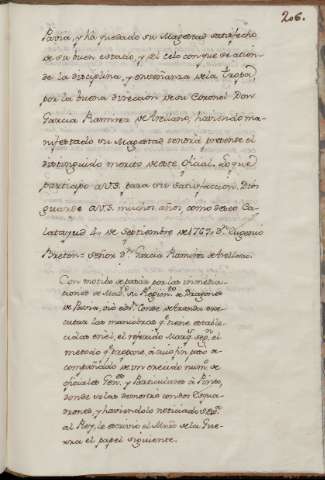 206.
Pavia, y ha quedado su Magestad satisfecho
de su buen estado, y del celo con que se atien-
de la disciplina, y enseñanza de la tropa,
por la buena direccion de su Coronel Don
Garcia Ramirez de Arellano, haviendo ma-
nifestado su Magestad tendrá presente el
distinguido merito de este oficial, lo que
participo a V.S. para su satisfaccion. Dios
guarde a V.S. muchos años, como deseo Ca-
latayud 4, de Septiembre de 1767. Dn. Eugenio
Breton = Señor Dn. Garcia Ramirez de Arellano.
Con motibo de pasar por las inmedia-
ciones de Mad. su Regim.to de Dragones
de Pavia, el Conde de Aranda
executar las maniobras q.e tiene estable-
cidas en el, el referido Marq.s
metodo q.e propone, a cuio fin pasó a
compañado de un crecido num.o de
oficiales Gen.es y Particulares a
donde vio las demostrò con dos Esqua-
drones, y haviendolo noticiado
al Rey, le escrivió el Mnro. de la Gue-
rra el papel siguiente.